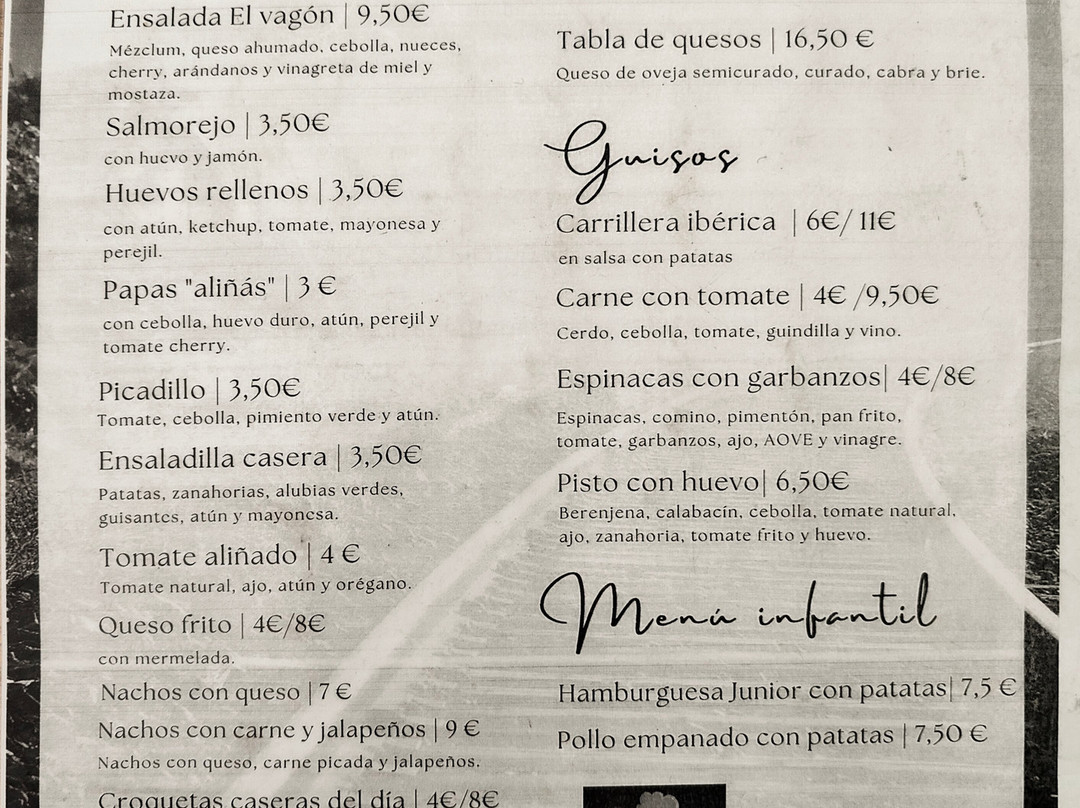 Ensalada El vagón | 9,50€
Mézclum, queso ahumado, cebolla, nueces,
cherry, arándanos y vinagreta de miel y
mostaza.
Salmorejo | 3,50€
con huevo y jamón.
Huevos rellenos | 3,50€
con atún, ketchup, tomate, mayonesa y
perejil.
Papas "aliñás" | 3 €
con cebolla, huevo duro, atún, perejil y
tomate cherry.
Picadillo | 3,50€
Tomate, cebolla, pimiento verde y atún.
Ensaladilla casera | 3,50€
Patatas, zanahorias, alubias verdes,
guisantes, atún y mayonesa.
Tomate aliñado | 4 €
Tomate natural, ajo, atún y orégano.
Queso frito | 4€/8€
con mermelada.
Nachos con queso | 7 €
Nachos con carne y jalapeños | 9 €
Nachos con queso, carne picada y jalapeños.
Croquetas caseras del día | 4€/8€
Tabla de quesos | 16,50 €
Queso de oveja semicurado, curado, cabra y brie.
Guisos
Carrillera ibérica | 6€/ 11€
en salsa con patatas
Carne con tomate | 4€ /9,50€
Cerdo, cebolla, tomate, guindilla y vino.
Espinacas con garbanzos| 4€/8€
Espinacas, comino, pimentón, pan frito,
tomate, garbanzos, ajo, AOVE y vinagre.
Pisto con huevo| 6,50€
Berenjena, calabacín, cebolla, tomate natural,
ajo, zanahoria, tomate frito y huevo.
Menú infantil
Hamburguesa Junior con patatas| 7,5 €
Pollo empanado con patatas | 7,50 €